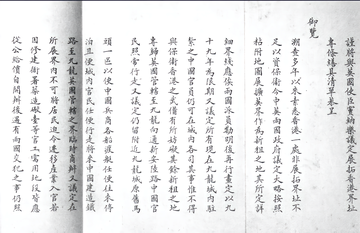 御覽
謹將與英國使臣竇納樂議定展拓香港界址
專條繕具清單恭呈
溯查多年以來素悉香港一處非展拓界址不
足以資保衛今中英兩國政府議定大略按照
粘附地圖展擴英界作為新租之地其所定詳
細界綫應俟兩國派員勘明後再行畫定以九
十九年為限期又議定所有現在九龍城內駐
紮之中國官員仍可在城內各司其事惟不得
與保衛香港之武備有所妨礙其餘新租之地
專歸英國管轄至九龍向通新安陸路中國官
民照常行走又議定仍留附近九龍城原舊馬
頭一區以便中國兵商各船渡艇任便往來停
泊且便城內官民任便行走將來中國建造鐵
路至九龍英國管轄之界臨時商辦又議定在
所展界內不可將居民迫令遷移產業入官若
因修建衙署築造礮臺等官工需用地段皆應
從公給價自開辦後遇有兩國交犯之事仍照